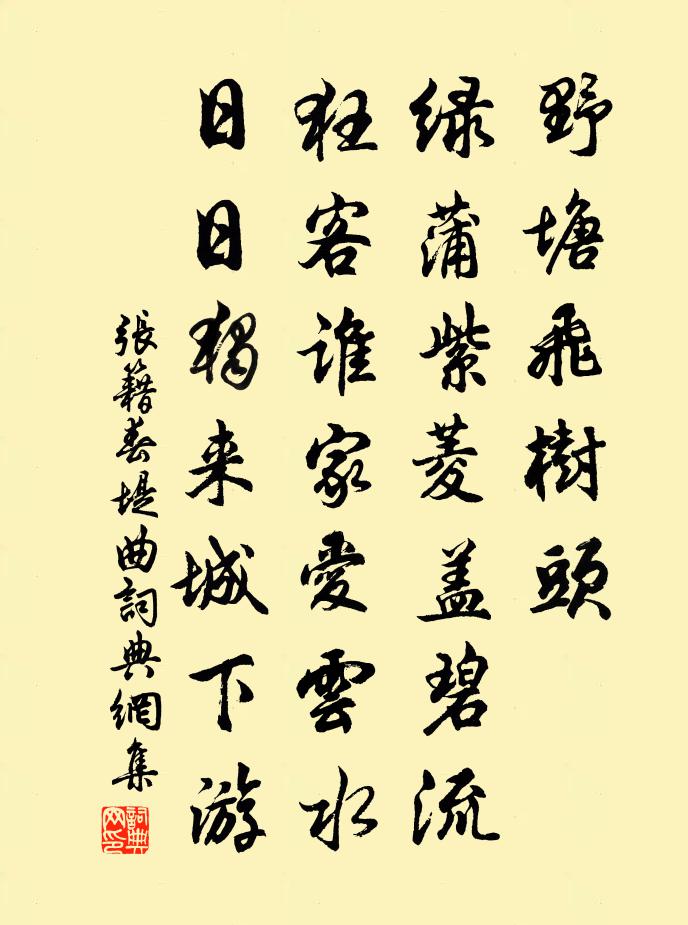 野塘飛樹頭
緑蒲紫菱盖碧流
狂客誰家愛雲水
日日獨来城下游
張籍春堤曲詞典網集
詞典網印